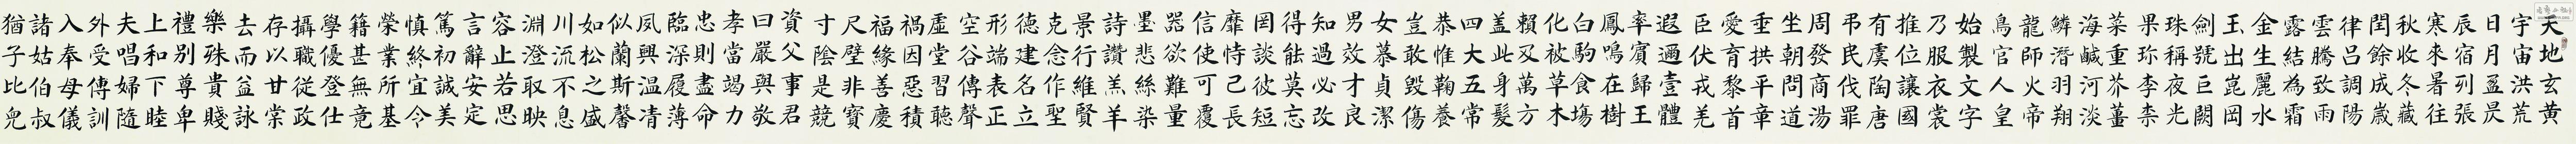 天地玄黄
宇宙洪荒
日月盈昃
辰宿列張
寒來暑往
秋收冬藏
閏餘成歲
律呂調陽
雲騰致雨
露結為霜
金生麗水
玉出崑岡
劍號巨闕
珠稱夜光
果珍李柰
菜重芥薑
海鹹河淡
鱗潛羽翔
龍師火帝
鳥官人皇
始製文字
乃服衣裳
推位讓國
有虞陶唐
弔民伐罪
周發商湯
坐朝問道
垂拱平章
愛育黎首
臣伏戎羌
遐邇壹體
率賓歸王
鳳鳴在樹
白駒食塲
化被草木
賴及萬方
盖此身髮
四大五常
恭惟鞠養
豈敢毀傷
女慕貞潔
男效才良
知過必改
得能莫忘
罔談彼短
靡恃己長
信使可覆
器欲難量
墨悲絲染
詩讚羔羊
景行維賢
克念作聖
德建名立
形端表正
空谷傳聲
虛堂習聽
禍因惡積
福緣善慶
尺璧非寶
寸陰是競
資父事君
曰嚴與敬
孝當竭力
忠則盡命
臨深履薄
夙興温凊
似蘭斯馨
如松之盛
川流不息
淵澄取映
容止若思
言辭安定
篤初誠美
慎終宜令
榮業所基
籍甚無竟
學優登仕
攝職從政
存以甘棠
去而益詠
樂殊貴賤
禮別尊卑
上和下睦
夫唱婦隨
外受傳訓
入奉母儀
諸姑伯叔
猶子比兒